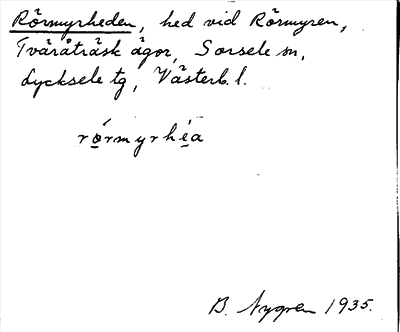 Rörmyrheden, hed vid Rörmyren,
Tväråträsk ägor, Sorsele sn,
Lycksele tg, Västerb. l.
rö́rmyrhé̱a
B. Nygren 1935.